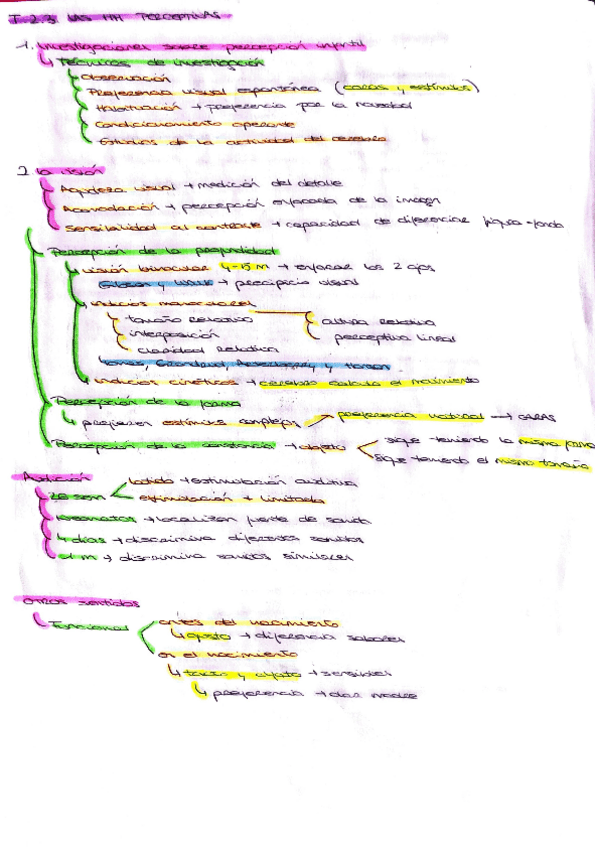 T-2.3 LAS HH PERCEPTIVAS
1. Investigaciones sobre percepción infantil
↳ Técnicas de investigación
Observación
Preferencia visual espontánea (caras y estímulos)
Habituación → preferencia por la novedad
Condicionamiento operante
Estudios de la actividad del cerebro
2. La visión
Agudeza visual → medición del detalle
Acomodación → percepción enfocada de la imagen
Sensibilidad al contraste → capacidad de diferenciar figura-fondo
Percepción de la profundidad
↳ visión binocular → enfocar los 2 ojos
Gibson y Walk → precipicio visual
Indicios monoculares
tamaño relativo
altura relativa
interposición
perspectiva lineal
claridad relativa
Yonas, Granrud, y
↳ Indicios cinéticos → cerebro calcula el movimiento
Percepción de la forma
↳ prefieren estímulos complejos
preferencia natural → CARAS
Percepción de la constancia → objeto
sigue teniendo la misma forma
sigue teniendo el mismo tamaño
Audición
latido → estimulación auditiva
28 sem
estimulación + limitada
Neonatos → localizan fuente de sonido
4 días → discrimina diferentes sonidos
1 m → discrimina sonidos similares
Otros sentidos
Funcional
antes del nacimiento
↳ gusto → diferencia sabores
en el nacimiento
↳ tacto y olfato → sensibles
↳ preferencia → olor madre